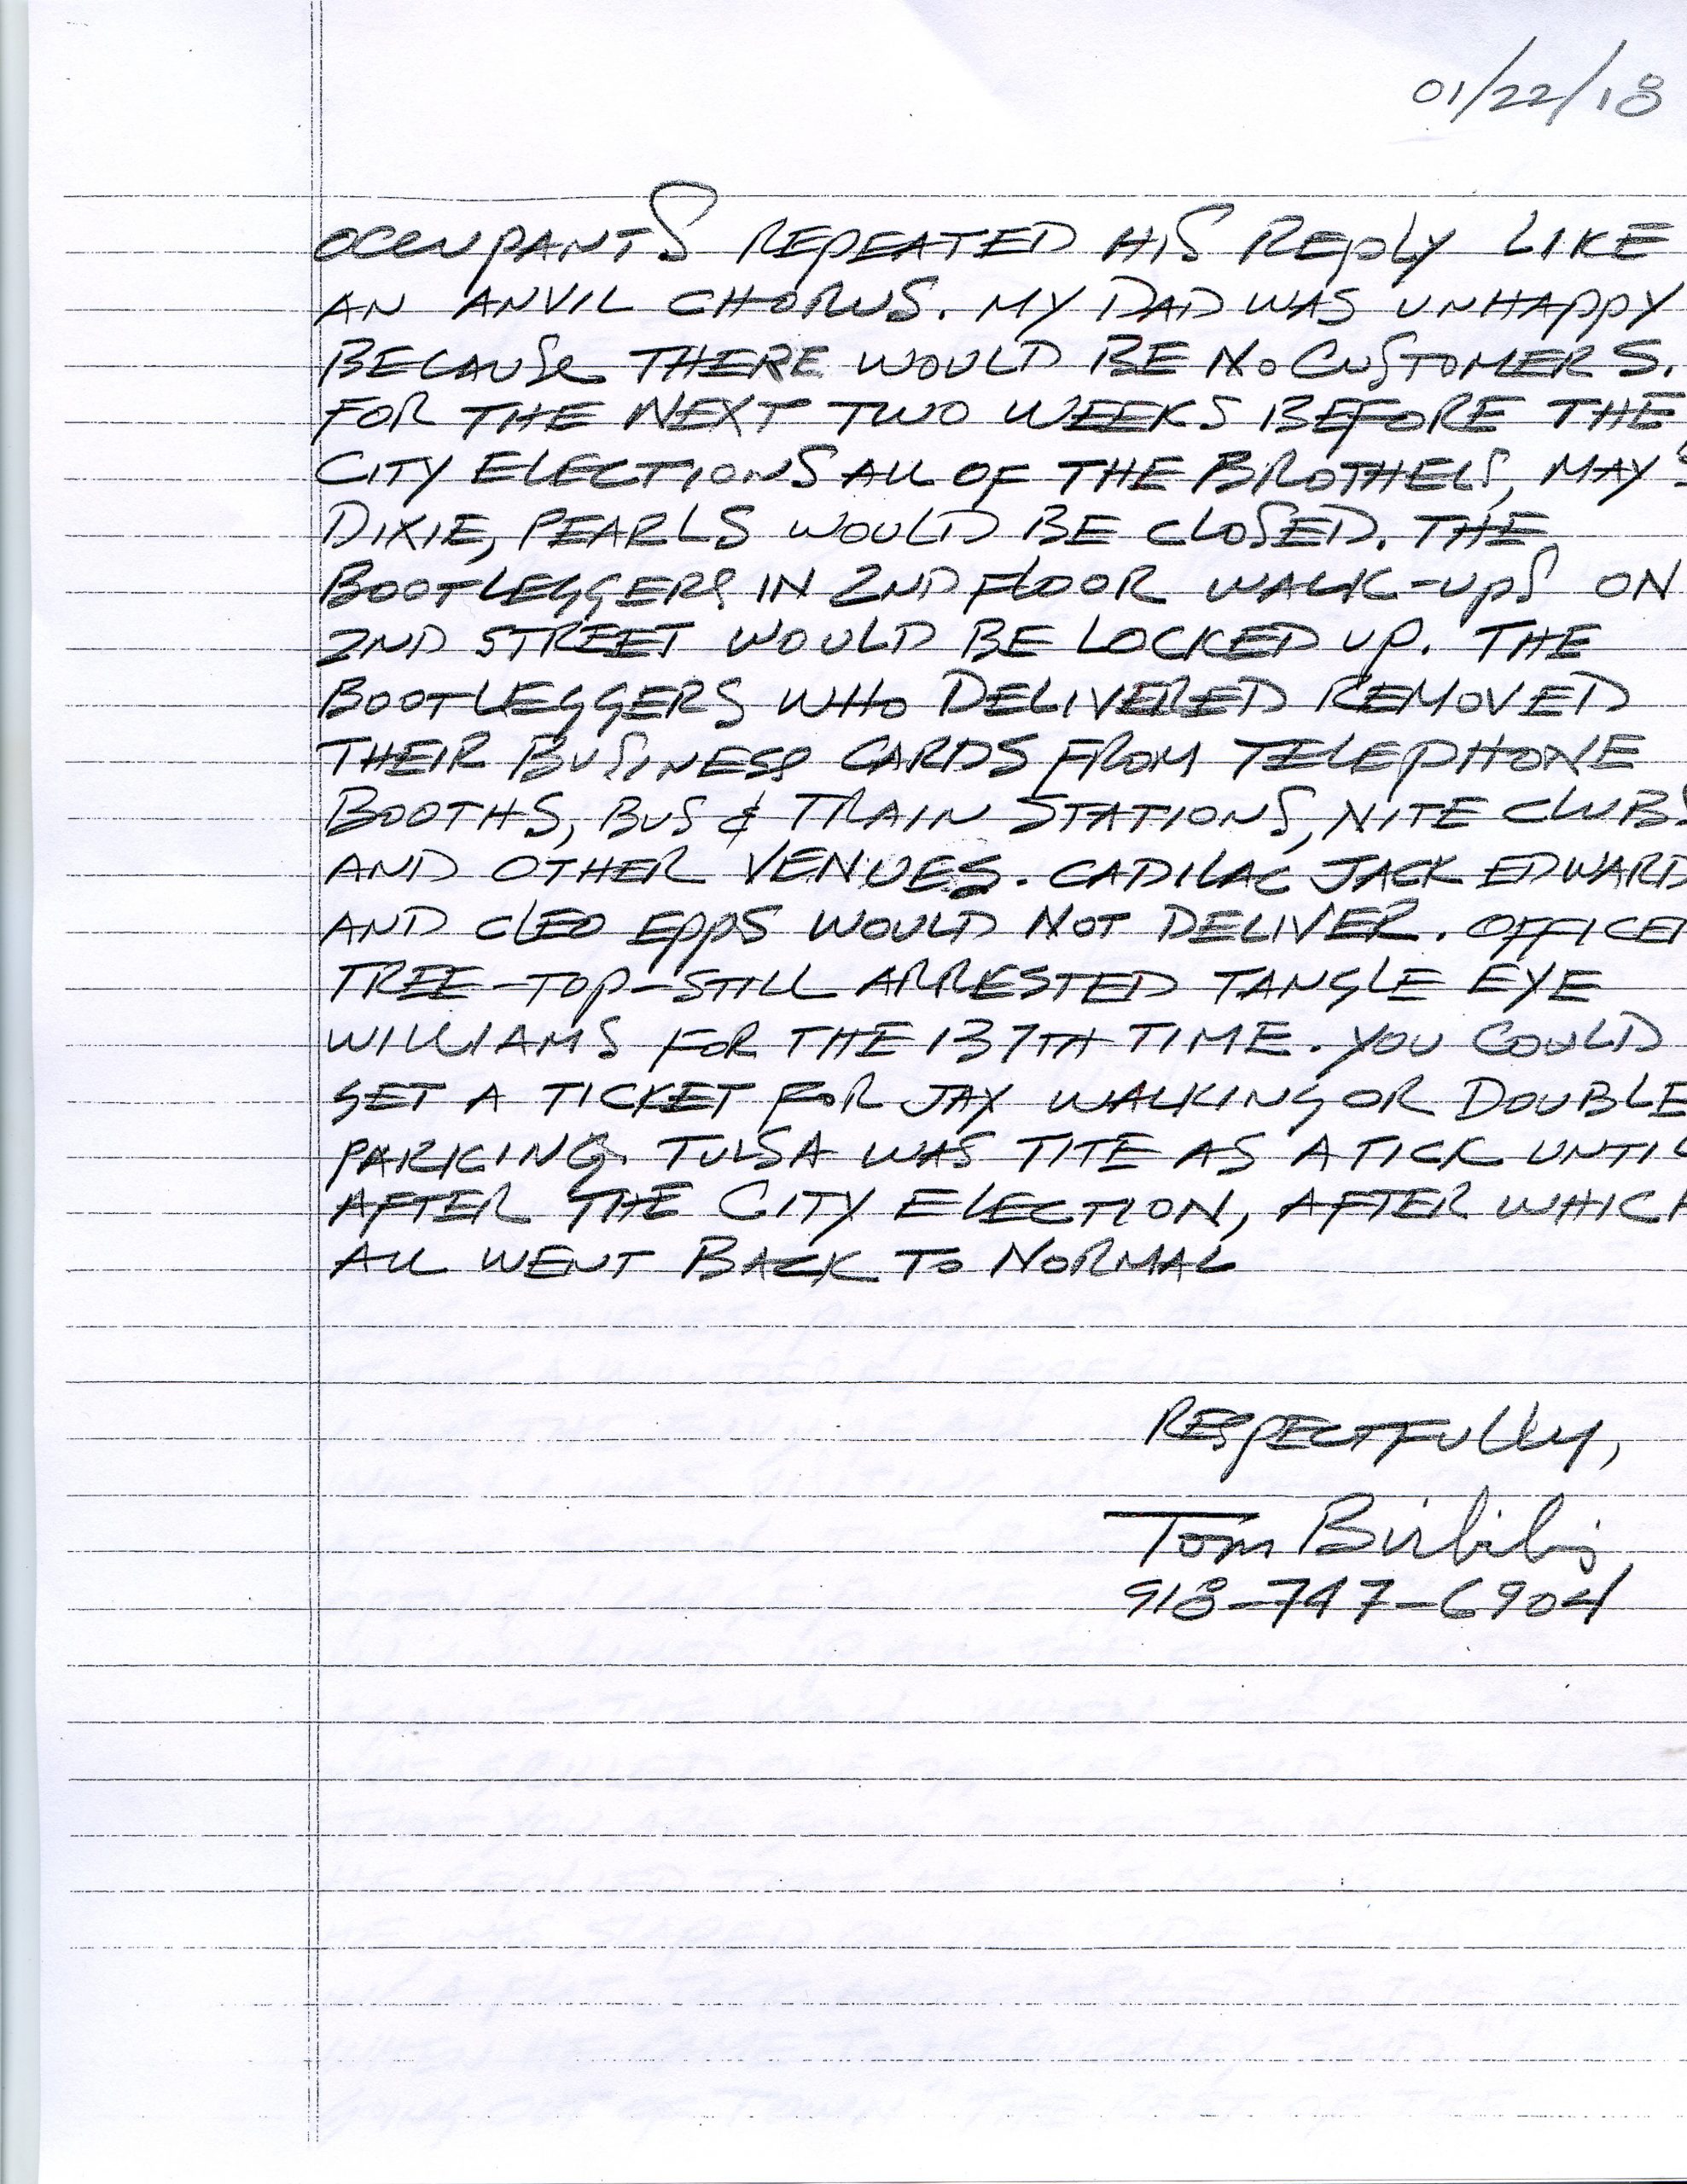 01/22/18
OCCUPANTS REPEATED HIS REPLY LIKE
AN ANVIL CHORUS. MY DAD WAS UNHAPPY
BECAUSE THERE WOULD BE NO CUSTOMERS.
FOR THE NEXT TWO WEEKS BEFORE THE
CITY ELECTIONS ALL OF THE BROTHELS, MAY'S
DIXIE, PEARLS WOULD BE CLOSED. THE
BOOTLEGGERS IN 2ND FLOOR WALK-UPS ON
2ND STREET WOULD BE LOCKED UP. THE
BOOTLEGGERS WHO DELIVERED REMOVED
THEIR BUSINESS CARDS FROM TELEPHONE
BOOTHS, BUS & TRAIN STATIONS, NITE CLUBS
AND OTHER VENUES. CADILAC JACK EDWARD
AND CLEO EPPS WOULD NOT DELIVER. OFFICER
TREE-TOP-STILL ARRESTED TANGLE EYE
WILLIAMS FOR THE 137TH TIME. YOU COULD
GET A TICKET FOR JAY WALKING OR DOUBLE
PARKING. TULSA WAS TITE AS A TICK UNTIL
AFTER THE CITY ELECTION, AFTER WHICH
ALL WENT BACK TO NORMAL
RESPECTFULLY,
Tom Birbilis
918-747-6904